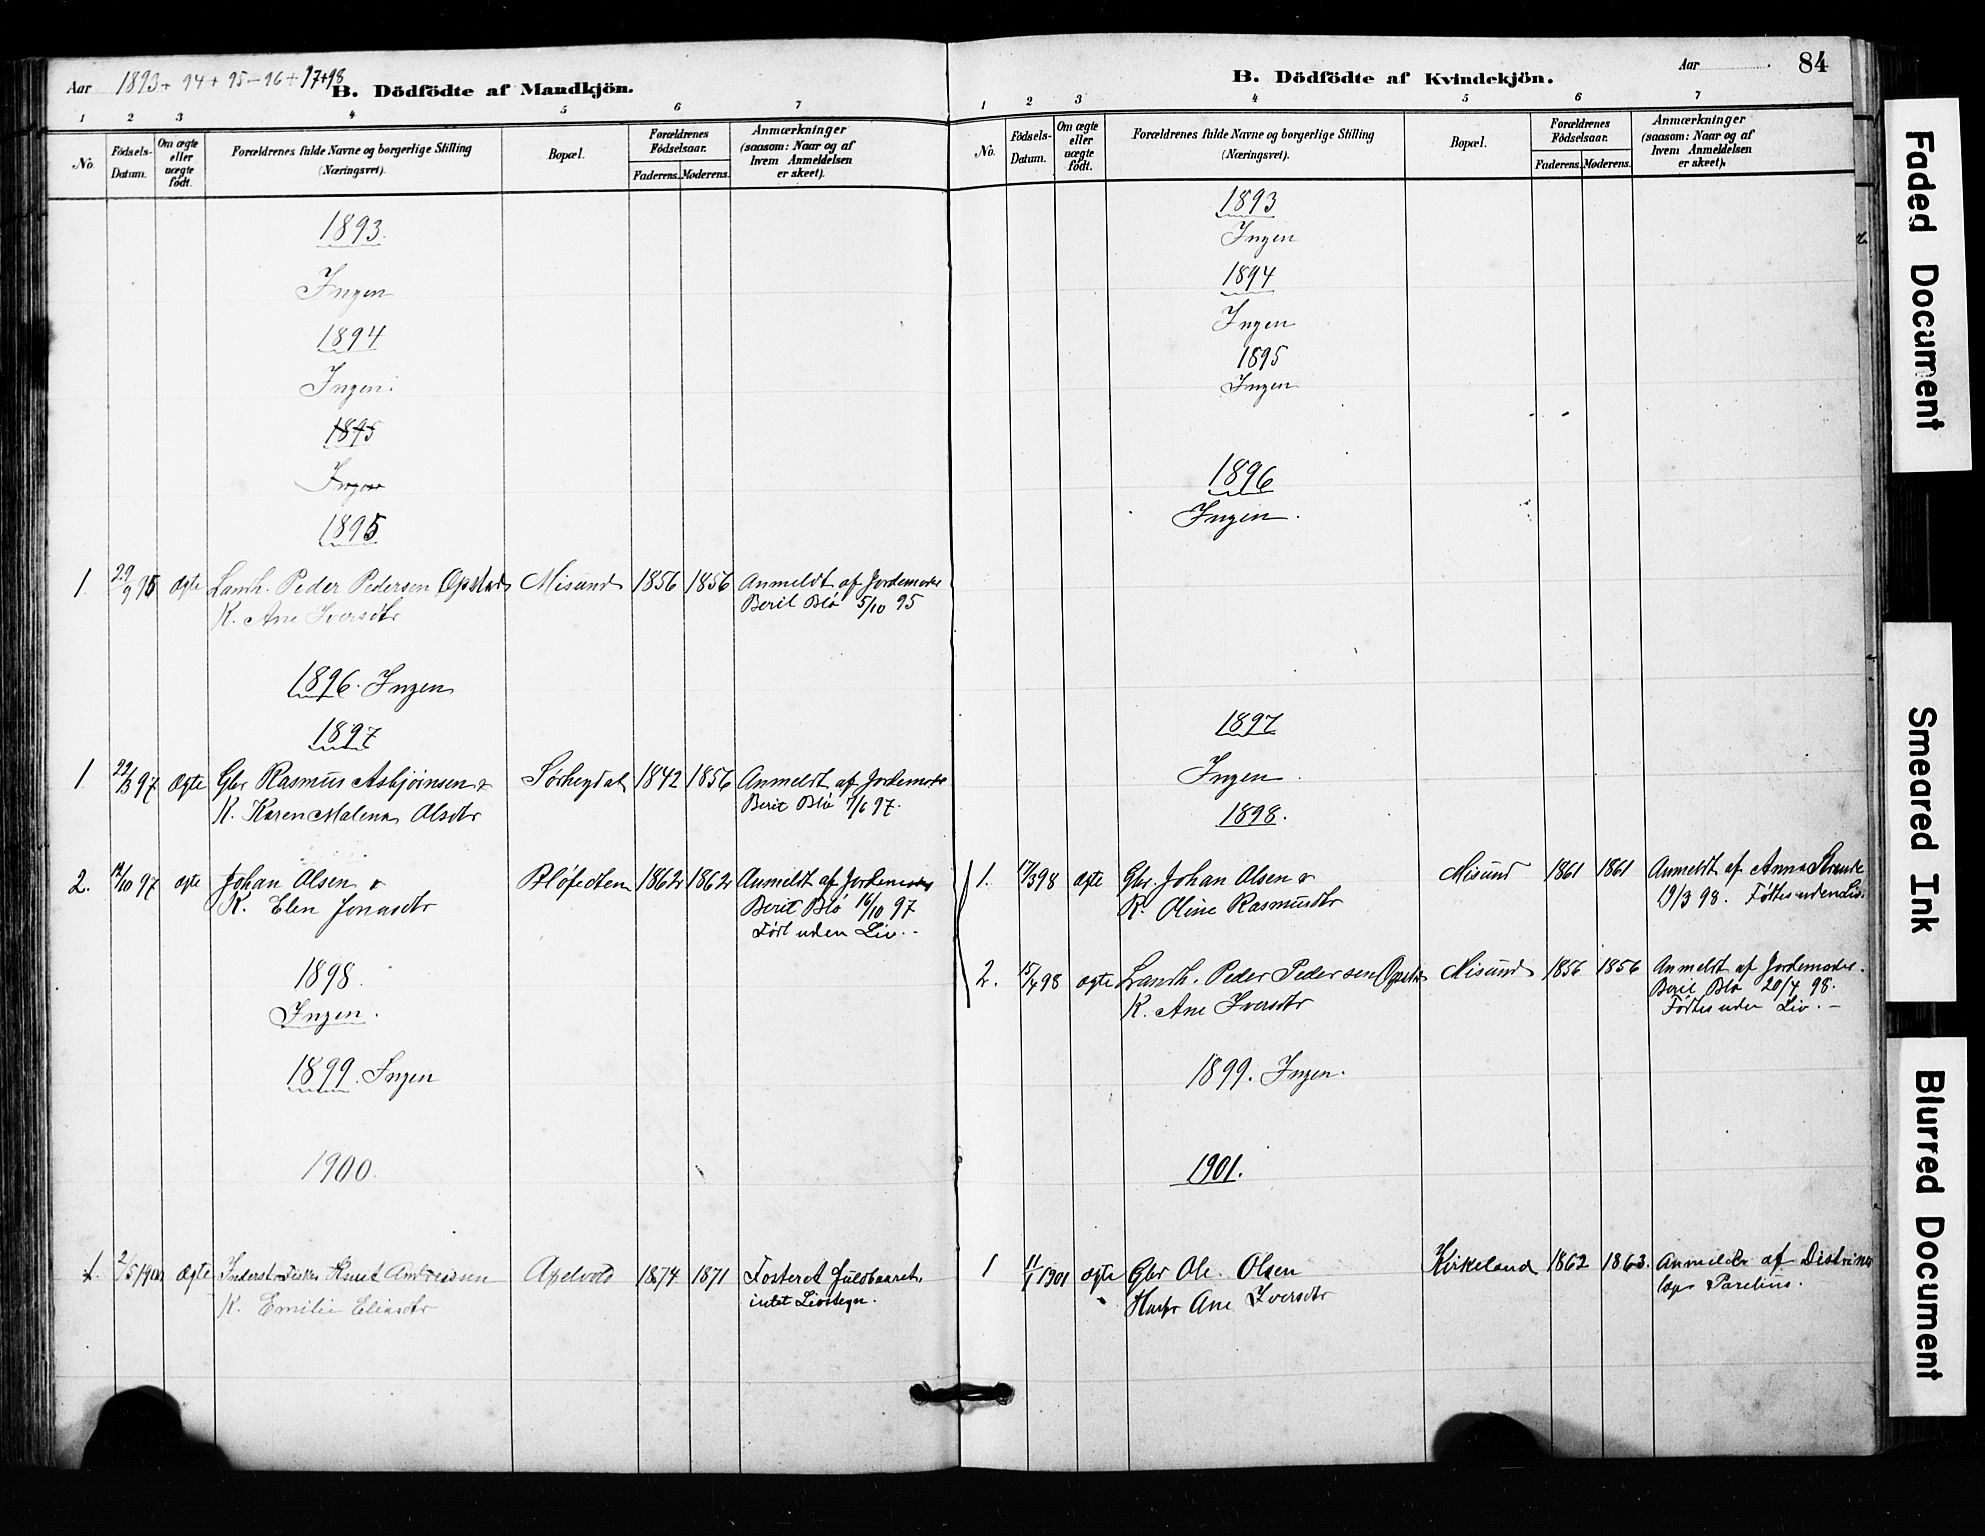 Aar 1893 + 94 + 95 - 96 + 97 + 98
B. Dödfödte af Mandkjön.
1 2 3 4 5 6 7
No. Födsels-Datum. Om ægte eller uægte födt. Forældrenes fulde Navne og borgerlige Stilling (Næringsvei). Bopæl. Forældrenes Födselsaar. Faderens. Moderens. Anmærkninger (saasom: Naar og af hvem Anmeldelsen er skeet).
1893.
Ingen
1894
Ingen.
1895
Ingen
1895
1. 29/9 95 ægte Landh. Peder Pedersen Opstad Misund 1856 1856 Anmeldt af Jordemoder
K. Ane Iversdtr Berit Blø 5/10 95
1896. Ingen
1897
1 22/3 97 ægte Gbr Rasmus Asbjørnsen & Sørheydal 1842 1856 Anmeldt af Jordemoder
K. Karen Malena Olsdtr Berit Blø 7/6 97.
2. 14/10 97 ægte Johan Olsen & Bløfeden 1862 1862 Anmeldt af Jordemoder
K. Elen Jonasdtr Berit Blø 16/10 97
Født uden Liv.
1898.
Ingen.
1899. Ingen
1900.
1. 2/5 1900 ægte Knut Andreassen Axelvold 1874 1871 Fosteret fuldbaaret,
K. Emilie Eliasdtr intet Livstegn.
Aar 84
B. Dödfödte af Kvindekjön.
1 2 3 4 5 6 7
No. Födsels-Datum. Om ægte eller uægte födt. Forældrenes fulde Navne og borgerlige Stilling (Næringsvei). Bopæl. Forældrenes Födselsaar. Faderens. Moderens. Anmærkninger (saasom: Naar og af hvem Anmeldelsen er skeet).
1893
Ingen
1894
Ingen
1895
Ingen
1896
Ingen.
1897
Ingen.
1898.
1. 17/3 98 ægte Gbr. Johan Olsen & Misund 1861 1861 Anmeldt af Anna Strande
K. Oline Rasmusdtr 19/3 98. Fødtes uden Liv.
2. 15/4 98 ægte Landh. Peder Pedersen Opstad Misund 1856 1856 Anmeldt af Jordemoder.
K. Ane Iversdtr Berit Blø 20/4 98.
Fødtes uden Liv. -
1899. Ingen.
1901.
1 11/1 1901 ægte Gbr Ole Olsen Kirkeland 1862 1863. Anmeldt af
Hustr Ane Iversdtr Parelius.
Faded Document
Smeared Ink
Blurred Document